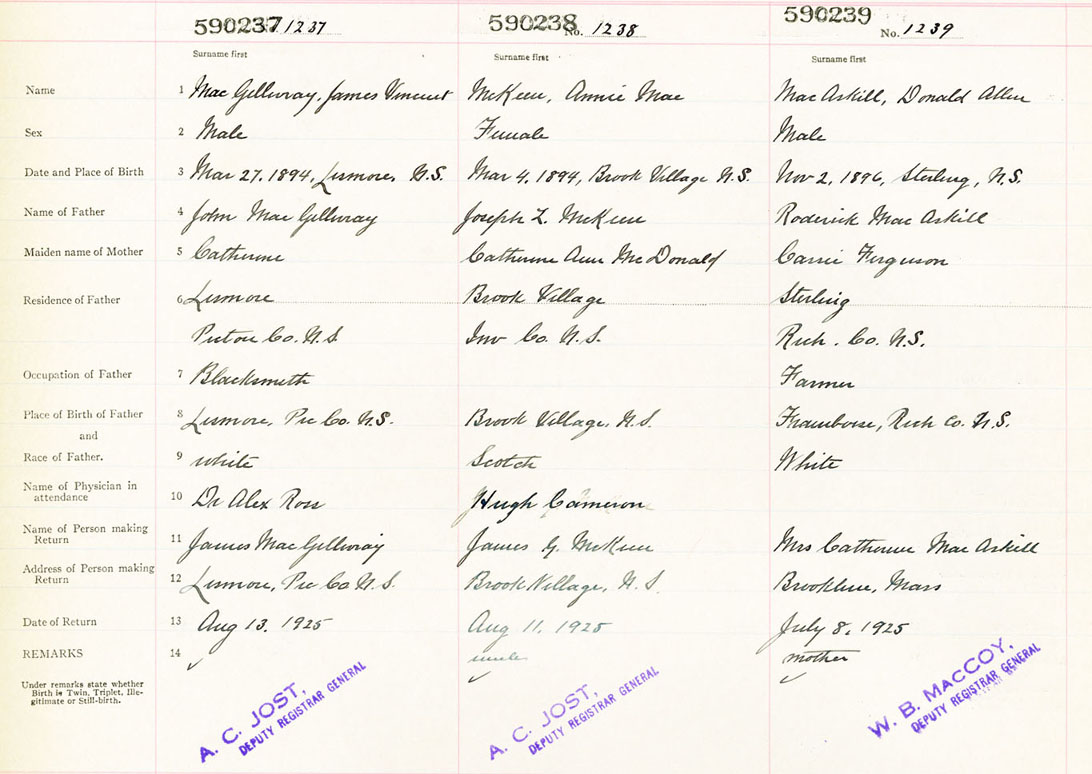 590237 1237
590238 No. 1238
590239 No. 1239
Surname first
Surname first
Surname first
Name 1 Mac Gillivray, James Vincent McKeen, Annie Mae Mac Askill, Donald Allen
Sex 2 Male Female Male
Date and Place of Birth 3 Mar 27, 1894, Lismore, N.S. Mar 4, 1894, Brook Village N.S. Nov 2, 1896, Sterling, N.S.
Name of Father 4 John Mac Gillivray Joseph L. McKeen Roderick Mac Askill
Maiden name of Mother 5 Catherine Catherine Ann McDonald Carrie Ferguson
Residence of Father 6 Lismore Brook Village Sterling
Pictou Co. N.S. Inv Co. N.S. Rich. Co. N.S.
Occupation of Father 7 Blacksmith Farmer
Place of Birth of Father 8 Lismore, Pic Co. N.S. Brook Village, N.S. Framboise, Rich Co. N.S.
and
Race of Father. 9 white Scotch White
Name of Physician in
attendance 10 Dr Alex Ross Hugh Cameron
Name of Person making
Return 11 James Mac Gillivray James G. McKeen Mrs Catherine Mac Askill
Address of Person making
Return 12 Lismore, Pic Co. N.S. Brook Village, N.S. Brookline, Mass
Date of Return 13 Aug 13, 1925 Aug 11, 1925 July 8, 1925
REMARKS 14 uncle mother
Under remarks state whether
Birth is Twin, Triplet, Ille-
gitimate or Still-birth.
A. C. JOST,
DEPUTY REGISTRAR GENERAL
A. C. JOST,
DEPUTY REGISTRAR GENERAL
W. B. MacCOY,
DEPUTY REGISTRAR GENERAL